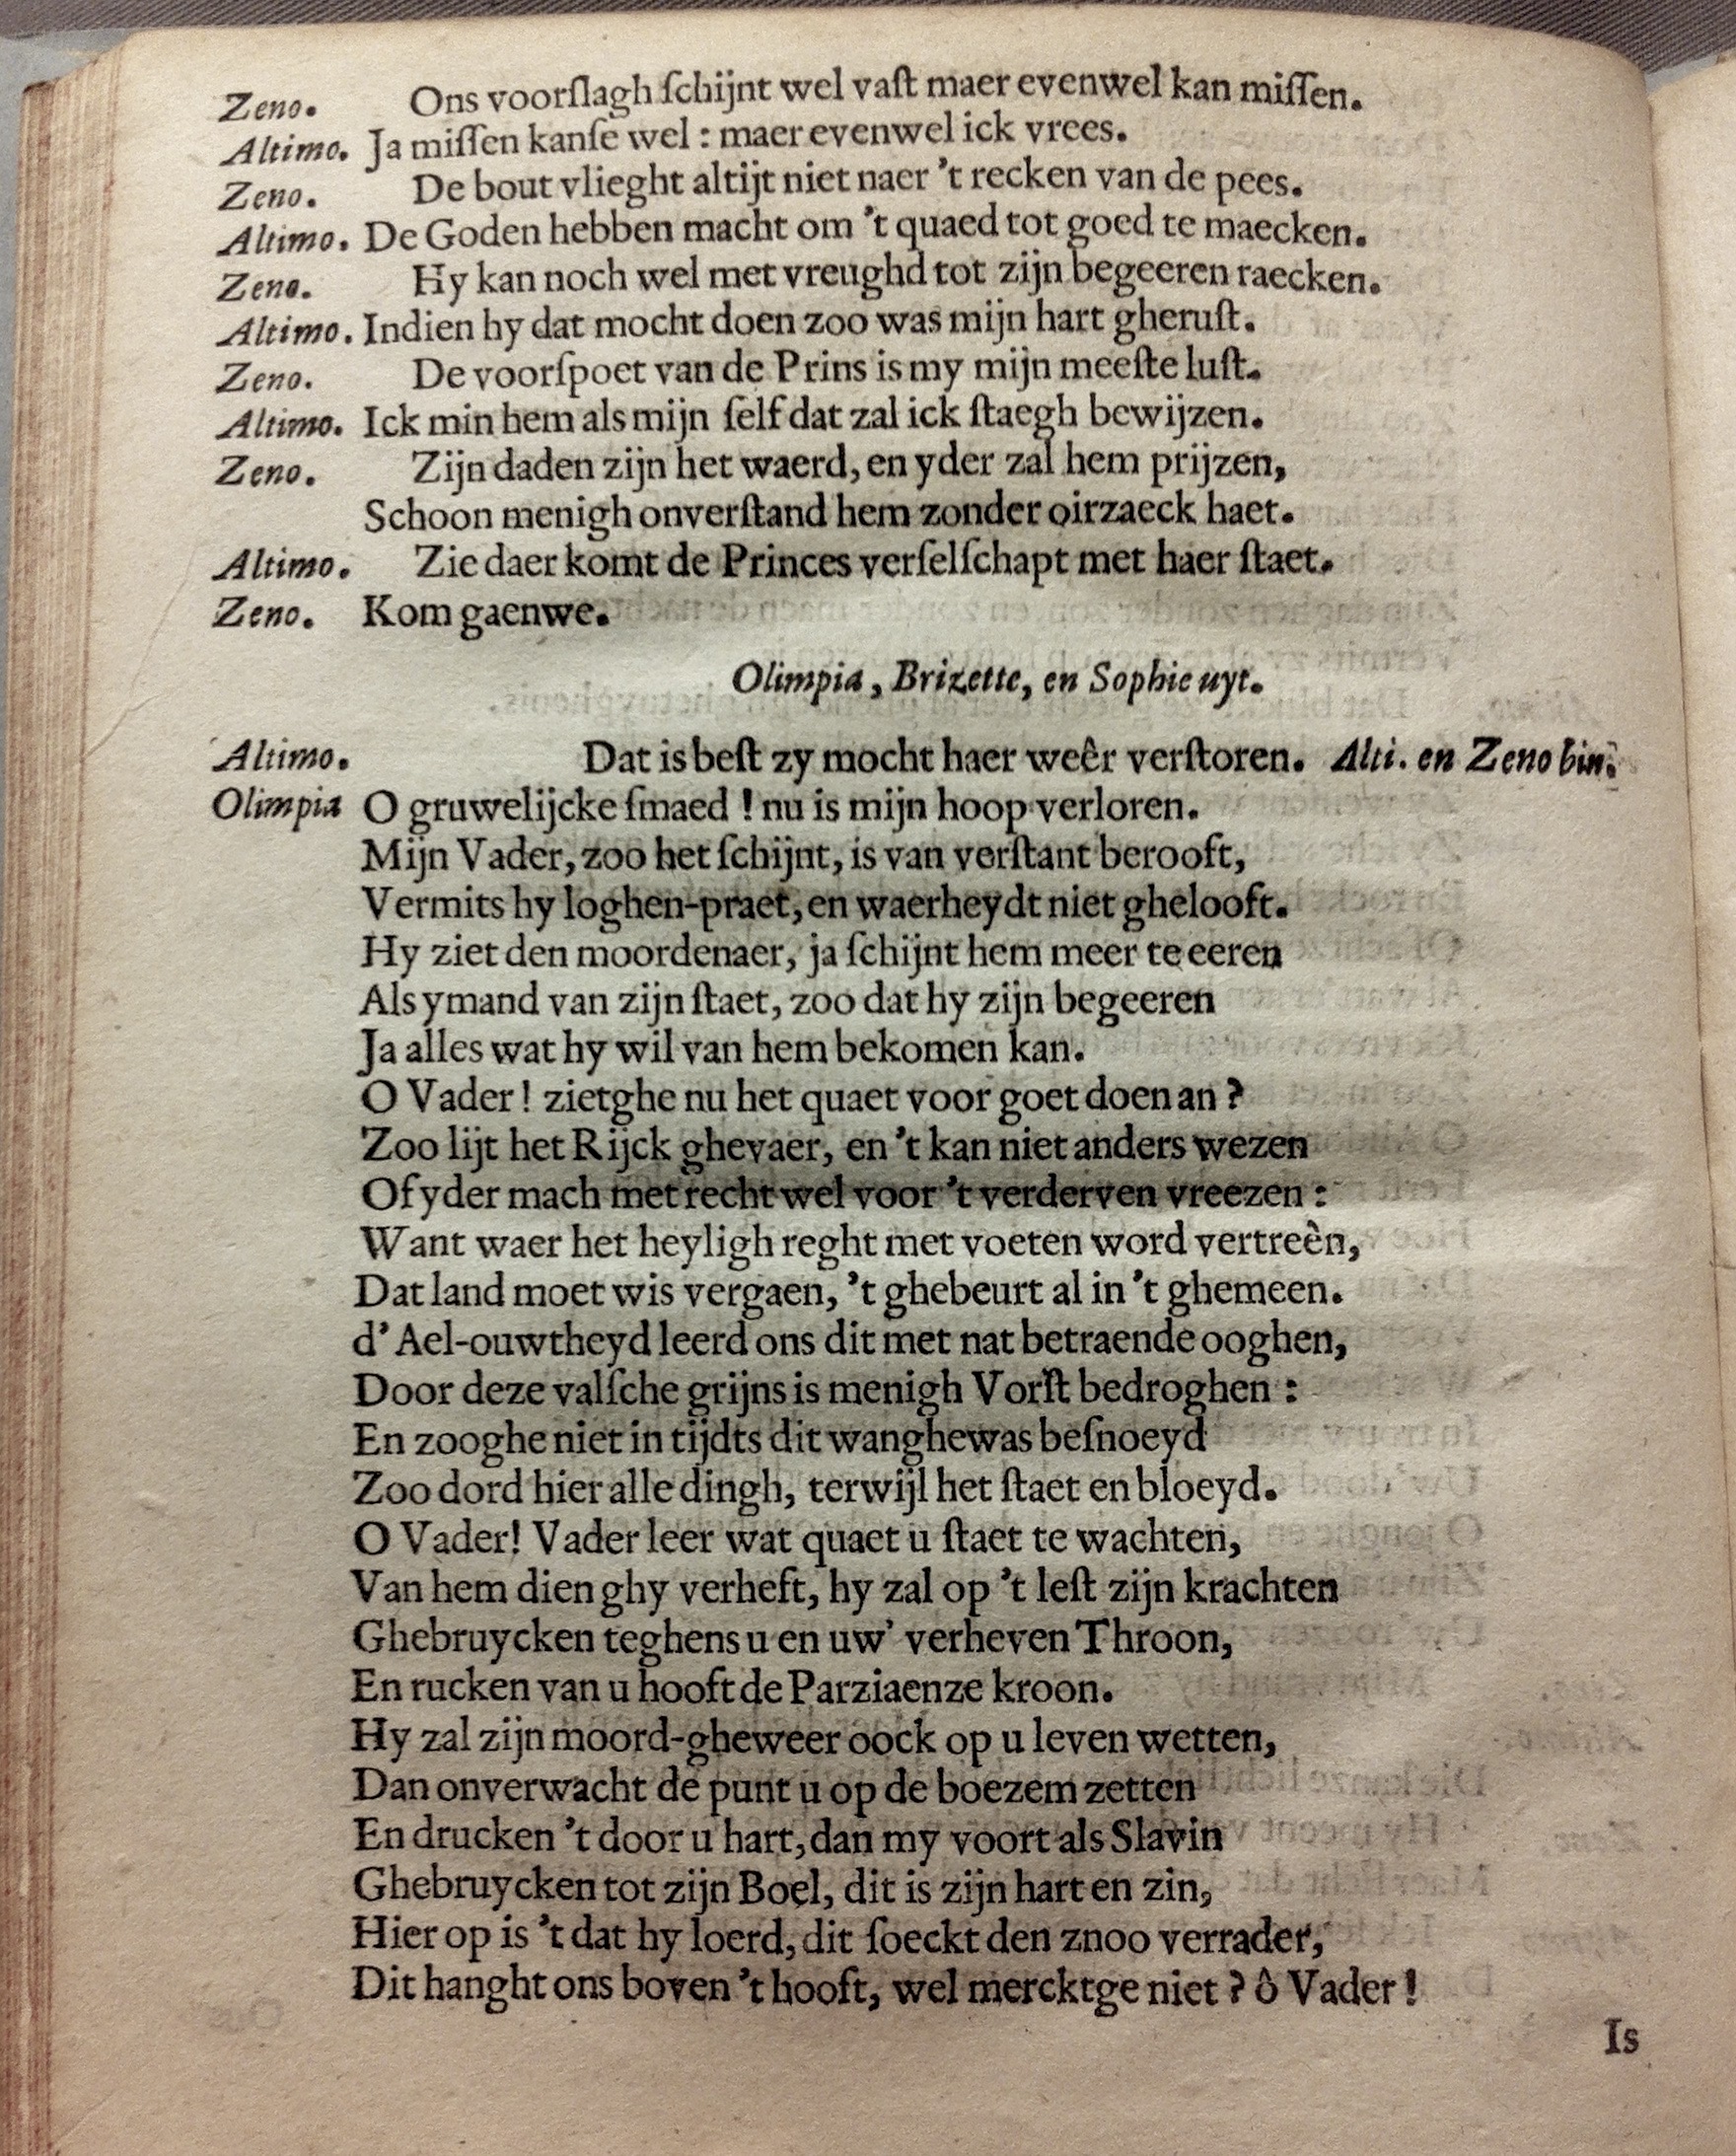 Zeno. Ons voorſlagh ſchijnt wel vaſt maer evenwel kan miſſen.
Altimo. Ja miſſen kanſe wel : maer evenwel ick vrees.
Zeno. De bout vlieght altijt niet naer 't recken van de pees.
Altimo. De Goden hebben macht om 't quaed tot goed te maecken.
Zeno. Hy kan noch wel met vreughd tot zijn begeeren raecken.
Altimo. Indien hy dat mocht doen zoo was mijn hart gheruſt.
Zeno. De voorſpoet van de Prins is my mijn meeſte luſt.
Altimo. Ick min hem als mijn ſelf dat zal ick ſtaegh bewijzen.
Zeno. Zijn daden zijn het waerd, en yder zal hem prijzen,
Schoon menigh onverſtand hem zonder oirzaeck haet.
Altimo. Zie daer komt de Princes verſelſchapt met haer ſtaet.
Zeno. Kom gaenwe.
Olimpia, Brizette, en Sophie uyt.
Altimo. Dat is beſt zy mocht haer weêr verſtoren. Alti. en Zeno bin.
Olimpia O gruwelijcke ſmaed ! nu is mijn hoop verloren.
Mijn Vader, zoo het ſchijnt, is van verſtant berooft,
Vermits hy loghen-praet, en waerheydt niet ghelooft.
Hy ziet den moordenaer, ja ſchijnt hem meer te eeren
Als ymand van zijn ſtaet, zoo dat hy zijn begeeren
Ja alles wat hy wil van hem bekomen kan.
O Vader ! zietghe nu het quaet voor goet doen an ?
Zoo lijt het Rijck ghevaer, en 't kan niet anders wezen
Of yder mach met recht wel voor 't verderven vreezen :
Want waer het heyligh reght met voeten word vertreên,
Dat land moet wis vergaen, 't ghebeurt al in 't ghemeen.
d' Ael-ouwtheyd leerd ons dit met nat betraende ooghen,
Door deze valſche grijns is menigh Vorſt bedroghen :
En zooghe niet in tijdts dit wanghewas beſnoeyd
Zoo dord hier alle dingh, terwijl het ſtaet en bloeyd.
O Vader! Vader leer wat quaet u ſtaet te wachten,
Van hem dien ghy verheft, hy zal op 't leſt zijn krachten
Ghebruycken teghens u en uw' verheven Throon,
En rucken van u hooft de Parziaenze kroon.
Hy zal zijn moord-gheweer oock op u leven wetten,
Dan onverwacht de punt u op de boezem zetten
En drucken 't door u hart, dan my voort als Slavin
Ghebruycken tot zijn Boel, dit is zijn hart en zin,
Hier op is 't dat hy loerd, dit ſoeckt den znoo verrader,
Dit hanght ons boven 't hooft, wel mercktge niet ? ô Vader !
Is